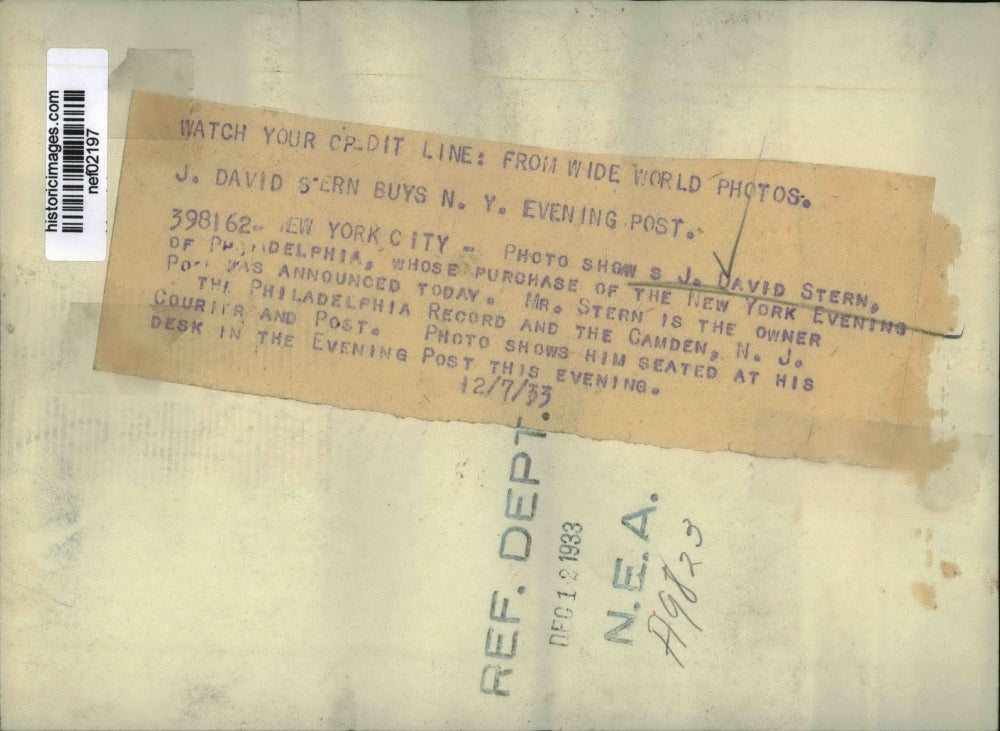 historicimages.com
nef02197
WATCH YOUR CR DIT LINE: FROM WIDE WORLD PHOTOS.
J. DAVID STERN BUYS N. Y. EVENING POST.
398162- EW YORK CITY - PHOTO SHOWS J. DAVID STERN,
OF PH DELPHIA, WHOSE PURCHASE OF THE NEW YORK EVENING
PO WAS ANNOUNCED TODAY. MR. STERN IS THE OWNER
THE PHILADELPHIA RECORD AND THE CAMDEN, N. J.
COURIER AND POST. PHOTO SHOWS HIM SEATED AT HIS
DESK IN THE EVENING POST THIS EVENING.
12/7/33
REF. DEPT.
DEC 12 1933
N.E.A.